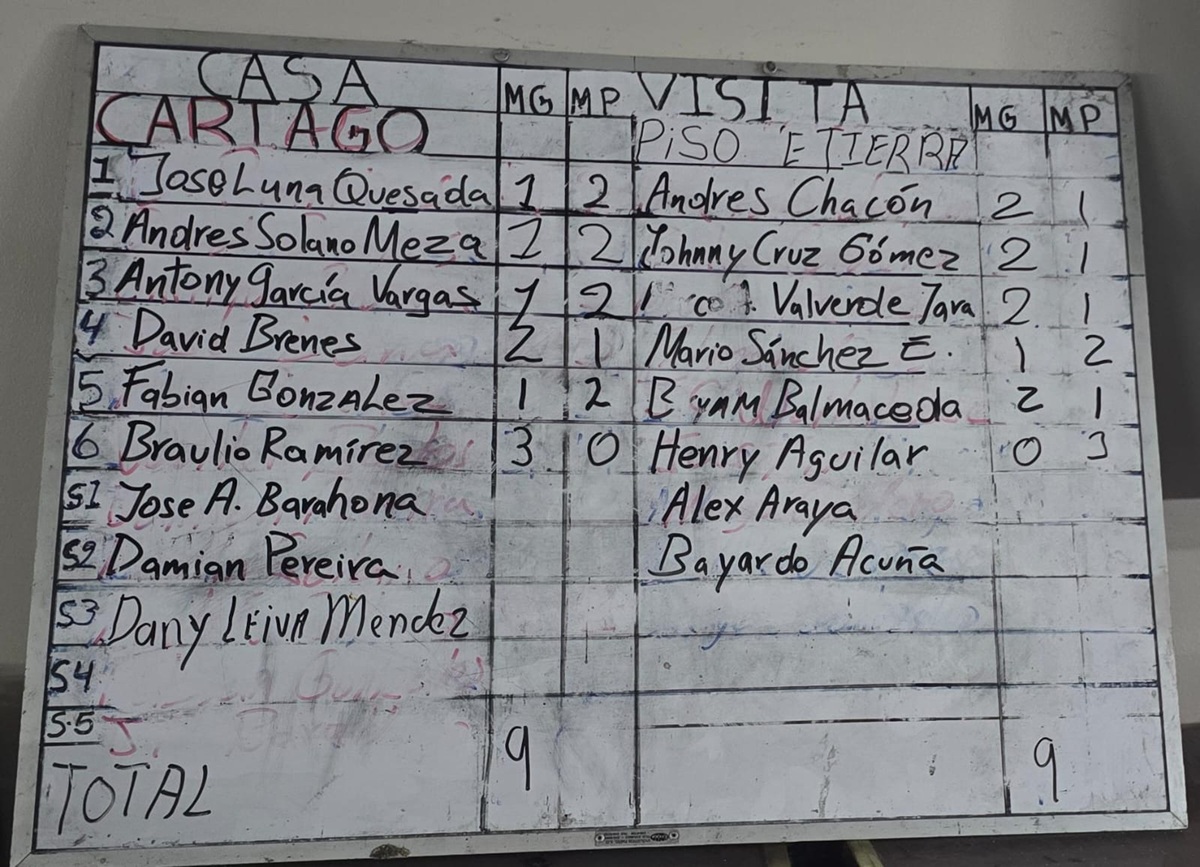 CASA MG MP VISITA MG MP
CARTAGO PISO 'E TIERRA
1 Jose Luna Quesada 1 2 Andres Chacón 2 1
2 Andres Solano Meza 1 2 Johnny Cruz Gómez 2 1
3 Antony García Vargas 1 2 Valverde Jara 2 1
4 David Brenes 2 1 Mario Sánchez E. 1 2
5 Fabian GonzALez 1 2 Balmaceda 2 1
6 Braulio Ramírez 3 0 Henry Aguilar 0 3
S1 Jose A. Barahona Alex Araya
S2 Damian Pereira Bayardo Acuña
S3 Dany LEIVA Mendez
S4
S.5
TOTAL 9 9